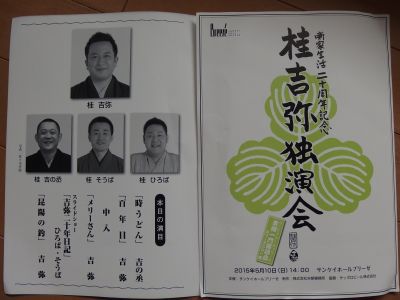 噺家生活二十周年記念
桂吉弥独演会
2015年5月10日(日)14:00 サンケイホールブリーゼ
桂 吉弥
桂 ひろば
桂 そうば
桂 吉の丞
本日の演目
「時うどん」 吉の丞
「百年目」 吉弥
中入
「メリーさん」 吉弥
スライドショー
「吉弥二十年日記」
ひろば・そうば
「昆陽の鈴」 吉弥